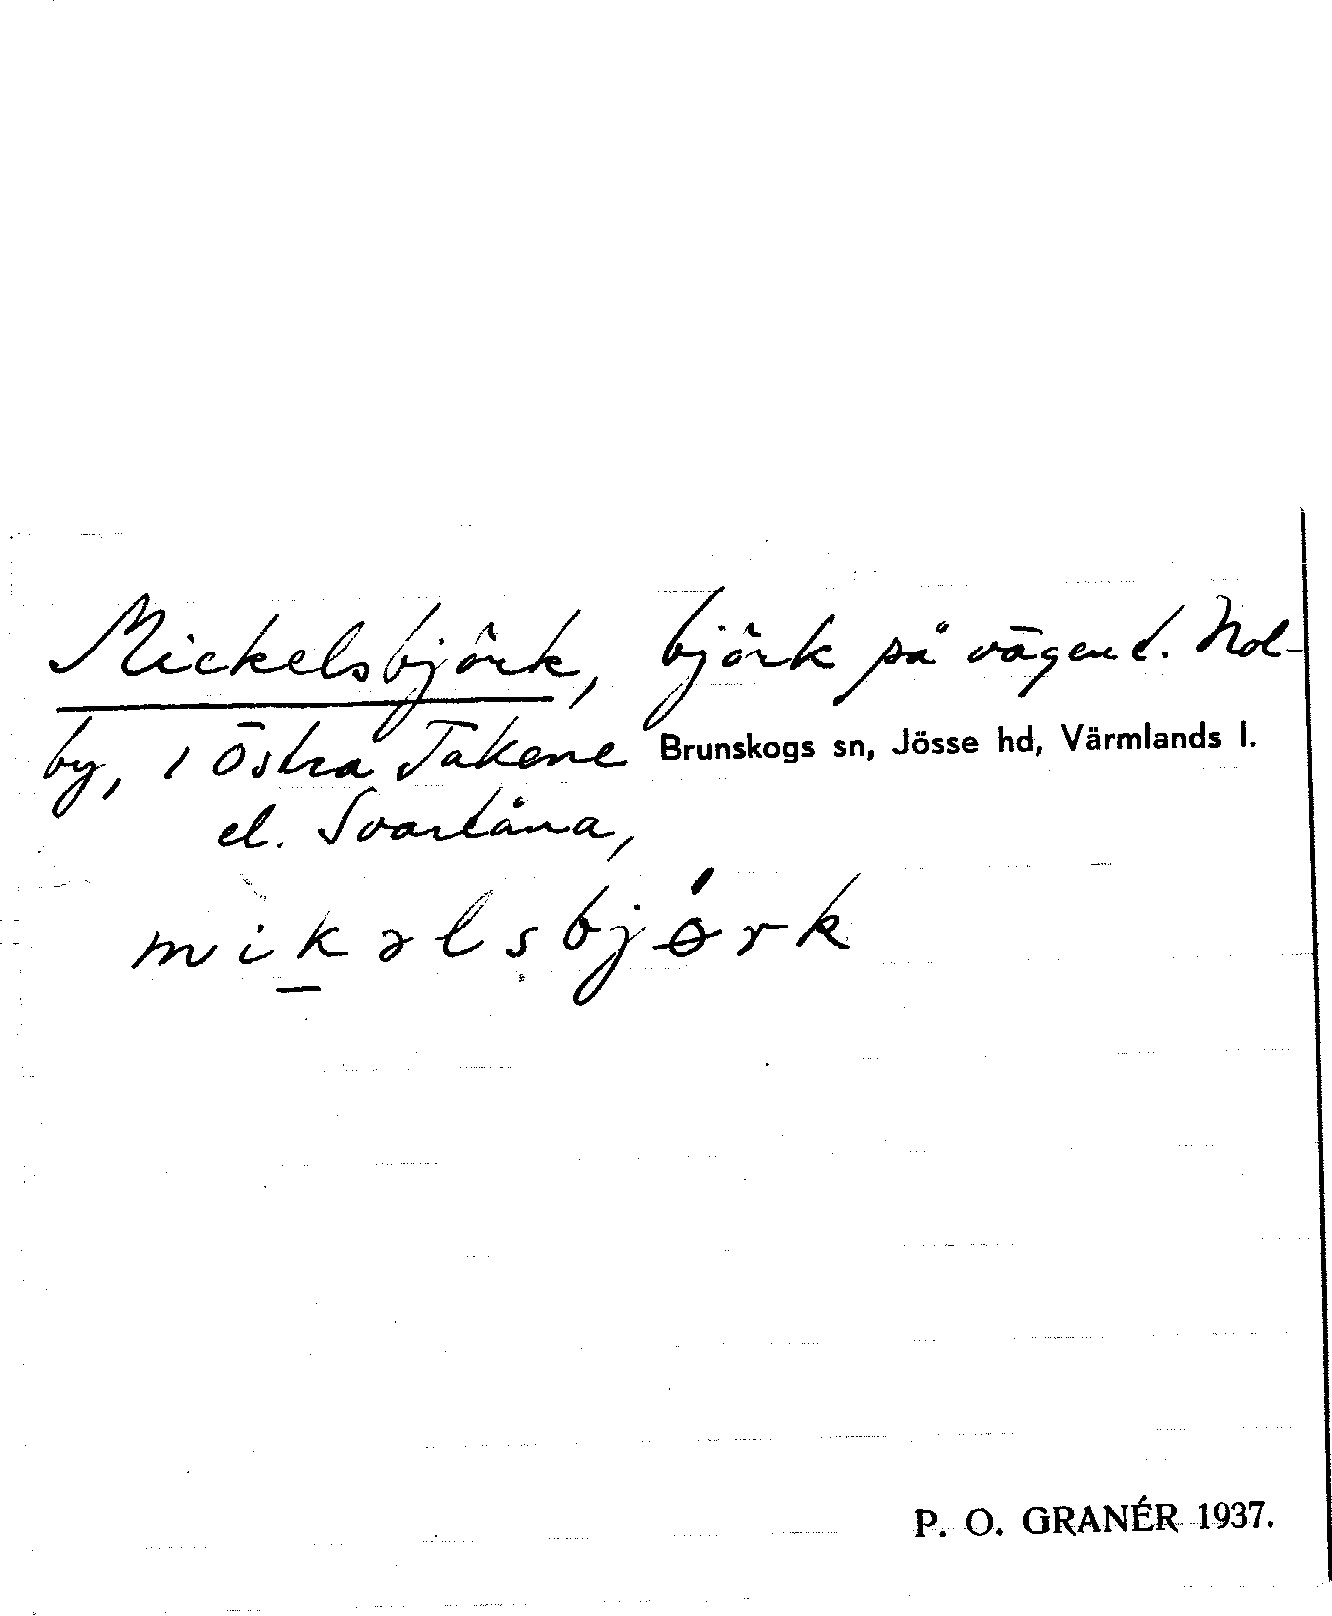 Mickelsbjörk, björk på vägen t. Nol-
by, i Östra Takene Brunskogs sn, Jösse hd, Värmlands l.
el. Svartåna,
mik̲əlsbjørk
P. O. GRANÉR 1937.